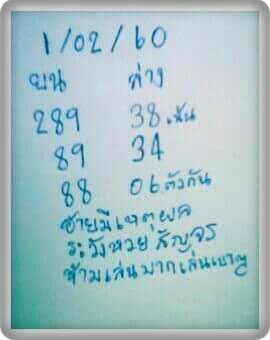 1/02/60
บน ล่าง
289 38.เน้น
89 34
88 06.ตัวกัน
ฮายมีเหตุผล
ระวังหวยสัญจร
ห้ามเล่นมากเล่นเบาๆ